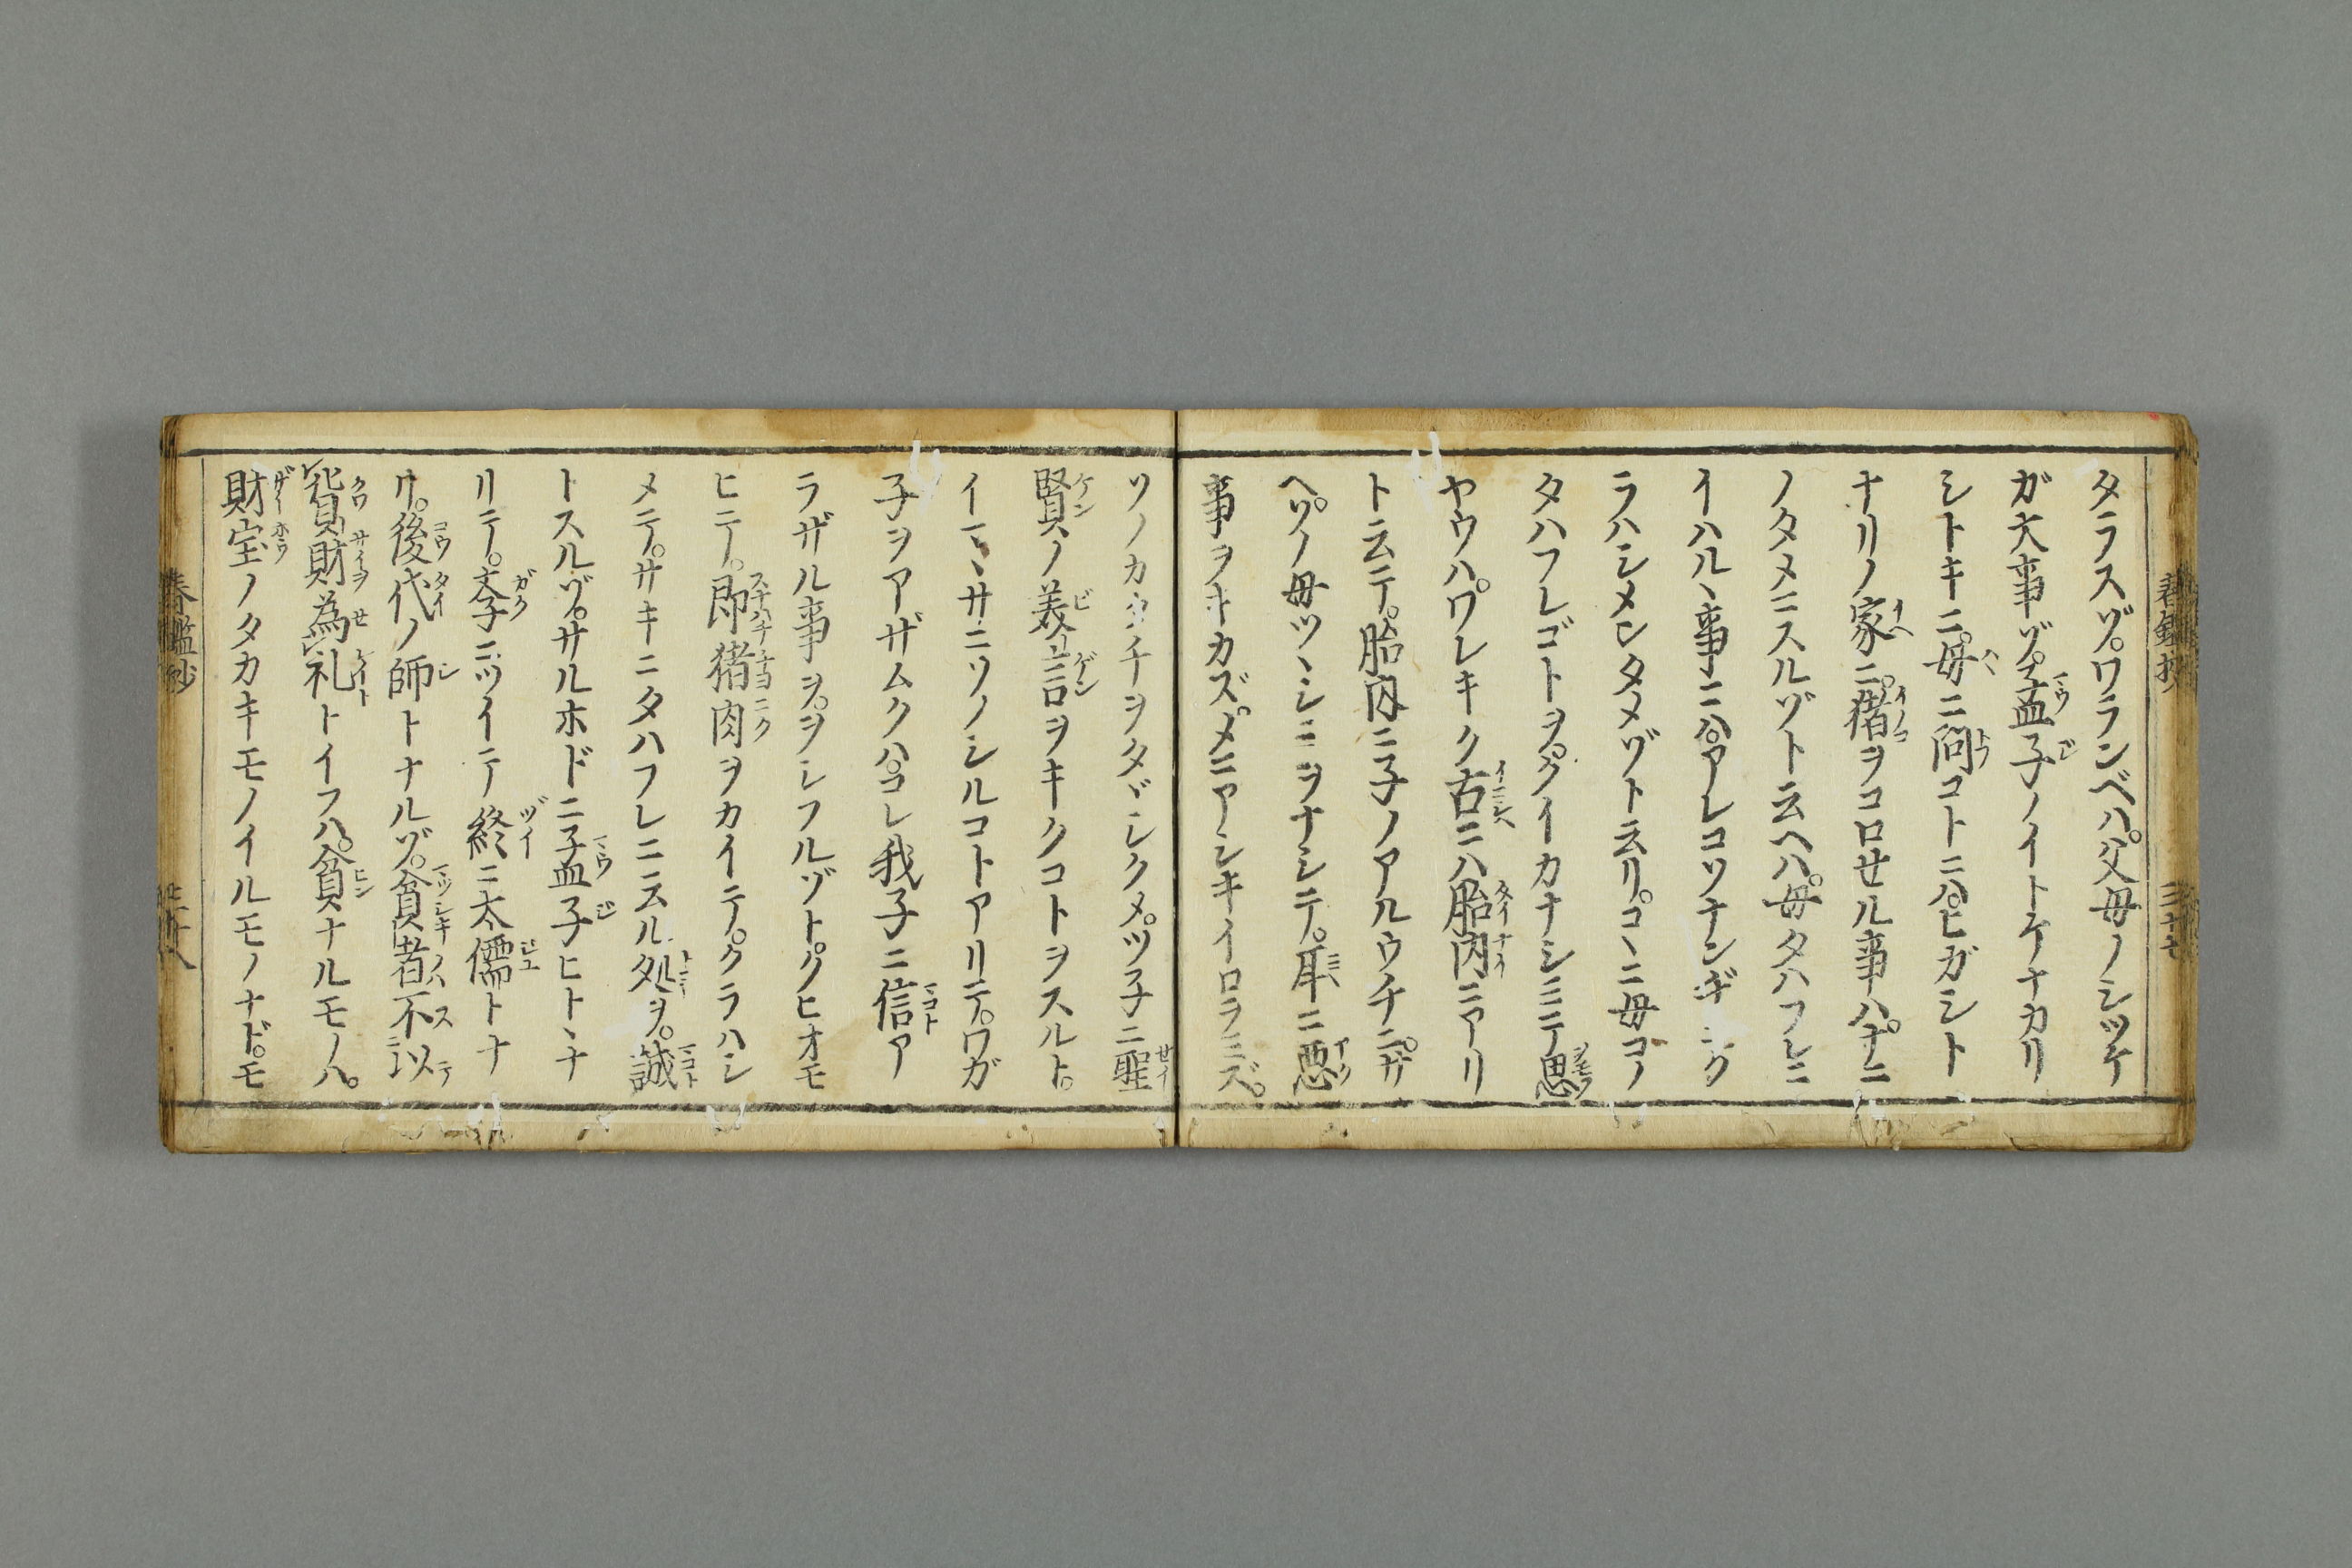 タラスゾ。ワランベハ。父母ノシツケ
ガ大事ゾ。孟子ノイトケナカリ
シトキニ。母ニ問コトニハ。ヒガシト
ナリノ家ニ。猪ヲコロセル事ハ。ナニ
ノタメニスルゾト云ヘハ。母タハフレニ
イハルヽ事ニハ。アレコソナンギニク
ラハシメンタメゾト云リ。コヽニ母コノ
タハフレゴトヲ。クイカナシミテ思
ヤウハ。ワレキク古ニハ胎内ニアリ
ト云テ。胎内ニ子ノアルウチニ。サ
ヘ。ソノ母ツヽシミヲナシテ。耳ニ悪
事ヲキカズ。メニアシキイロラミズ。
ソノカタチヲタヾシクメ。ツ子ニ聖
賢ノ美言ヲキクコトヲスルト。
イマヽサニソノシルコトアリテ。ワガ
子ヲアザムクハ。コレ我子ニ信ア
ラザル事ヲ。ヲシフルゾト。クヒオモ
ヒニテ。即猪肉ヲカイテ。クラハシ
メテ。サキニタハフレニ云ル処ヲ。誠
トスルゾ。サルホドニ孟子ヒトヽナ
リテ。斈ニツイテ終ニ太儒トナ
リ。後代ノ師トナルゾ。貧者不以
貨財為礼トイフハ。貧ナルモノハ。
財宝ノタカキモノイルモノナド。モ
春鑑抄
三十七